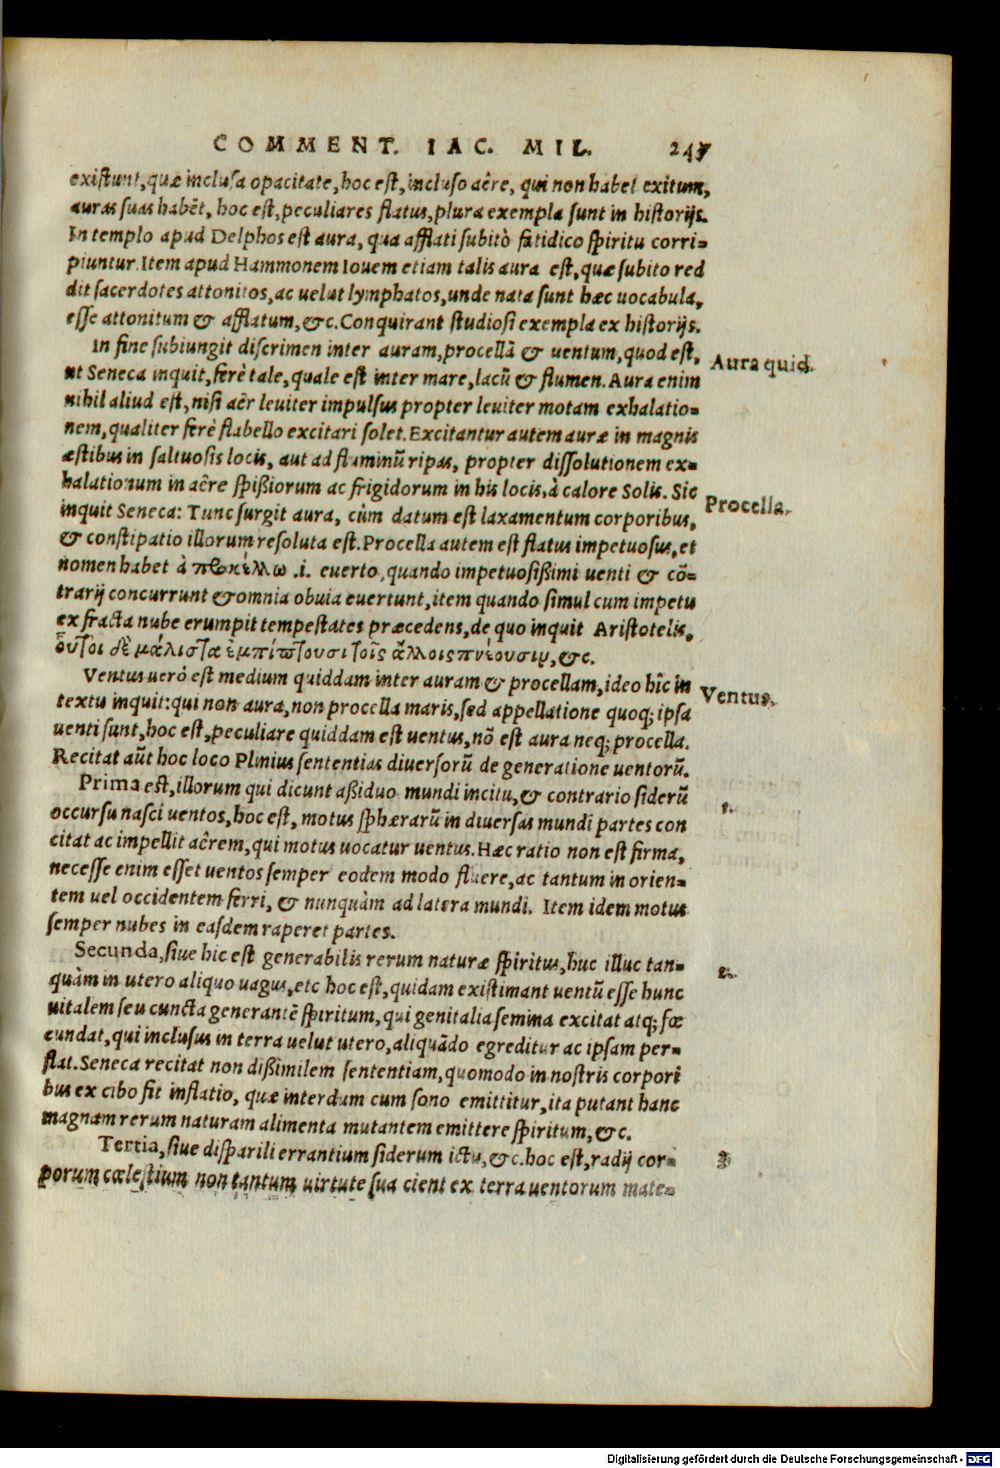 COMMENT. IAC. MIL. 247
existunt, quæ inclusa opacitate, hoc est, incluso aëre, qui non habet exitum,
auras suas habẽt, hoc est, peculiares flatus, plura exempla sunt in historijs.
In templo apud Delphos est aura, qua afflati subitò fatidico spiritu corri-
piuntur. Item apud Hammonem Iouem etiam talis aura est, quæ subito red
dit sacerdotes attonitos, ac uelut lymphatos, unde nata sunt hæc uocabula,
esse attonitum & afflatum, &c. Conquirant studiosi exempla ex historijs.
In fine subiungit discrimen inter auram, procellã & uentum, quod est,
Aura quid.
ut Seneca inquit, ferè tale, quale est inter mare, lacũ & flumen. Aura enim
nihil aliud est, nisi aër leuiter impulsus propter leuiter motam exhalatio-
nem, qualiter ferè flabello excitari solet. Excitantur autem auræ in magnis
æstibus in saltuosis locis, aut ad fluminũ ripas, propter dissolutionem ex-
halationum in aëre spißiorum ac frigidorum in his locis, à calore Solis. Sic
Procella.
inquit Seneca: Tunc surgit aura, cùm datum est laxamentum corporibus,
& constipatio illorum resoluta est. Procella autem est flatus impetuosus, et
nomen habet à προκέλλω .i. euerto, quando impetuosißimi uenti & cõ-
trarij concurrunt & omnia obuia euertunt, item quando simul cum impetu
ex fracta nube erumpit tempestates præcedens, de quo inquit Aristotelis,
οὗτοι δὲ μάλιστα ἐμπίπτουσι τοῖς ἄλλοις πνέουσιν, &c.
Ventus uerò est medium quiddam inter auram & procellam, ideo hîc in
Ventus.
textu inquit: qui non aura, non procella maris, sed appellatione quoq; ipsa
uenti sunt, hoc est, peculiare quiddam est uentus, nõ est aura neq; procella.
Recitat aũt hoc loco Plinius sententias diuersorũ de generatione uentorũ.
Prima est, illorum qui dicunt aßiduo mundi incitu, & contrario siderũ
1.
occursu nasci uentos, hoc est, motus sphærarũ in diuersas mundi partes con
citat ac impellit aërem, qui motus uocatur uentus. Hæc ratio non est firma,
necesse enim esset uentos semper eodem modo fluere, ac tantum in orien-
tem uel occidentem ferri, & nunquàm ad latera mundi. Item idem motus
semper nubes in easdem raperet partes.
Secunda, siue hic est generabilis rerum naturæ spiritus, huc illuc tan-
2.
quàm in utero aliquo uagus, etc hoc est, quidam existimant uentũ esse hunc
uitalem seu cuncta generantẽ spiritum, qui genitalia semina excitat atq; fœ
cundat, qui inclusus in terra uelut utero, aliquãdo egreditur ac ipsam per-
flat. Seneca recitat non dißimilem sententiam, quomodo in nostris corpori
bus ex cibo fit inflatio, quæ interdum cum sono emittitur, ita putant hanc
magnam rerum naturam alimenta mutantem emittere spiritum, &c.
Tertia, siue disparili errantium siderum ictu, &c. hoc est, radij cor-
3
porum cœlestium non tantum uirtute sua cient ex terra uentorum mate-
Digitalisierung gefördert durch die Deutsche Forschungsgemeinschaft - DFG